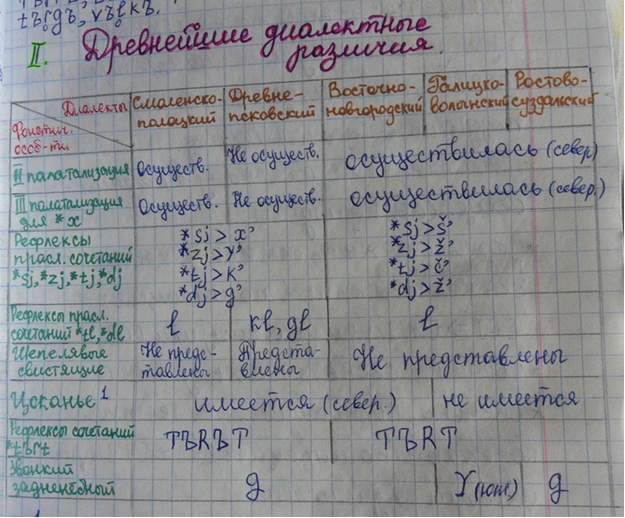 tъrgъ, vъlkъ.
II. Древнейшие диалектные
различия.
Диалекты
Фонетич.
особ-ти
Смоленско-
полоцкий
Древне-
псковский
Восточно-
новгородский
Галицко-
волынский
Ростово-
суздальский
II палатализация
Осуществ.
Не осуществ.
осуществилась (север)
III палатализация
для *x
Осуществ.
Не осуществ.
осуществилась (север.)
Рефлексы
прасл. сочетаний
*sj, *zj, *tj, *dj
*sj > x’
*zj > γ’
*tj > k’
*dj > g’
*sj > š’
*zj > ž’
*tj > č’
*dj > ž’
Рефлексы прасл.
сочетаний *tl, *dl
l
kl, gl
l
Шепелявые
свистящие
Не предс-
тавлены
Предста-
влены
Не представлены
Цоканье 1
имеется (север.)
не имеется
Рефлексы сочетаний
*tъrt
TЪRЪT
TЪRT
Звонкий
задненёбный
g
γ (юж.)
g